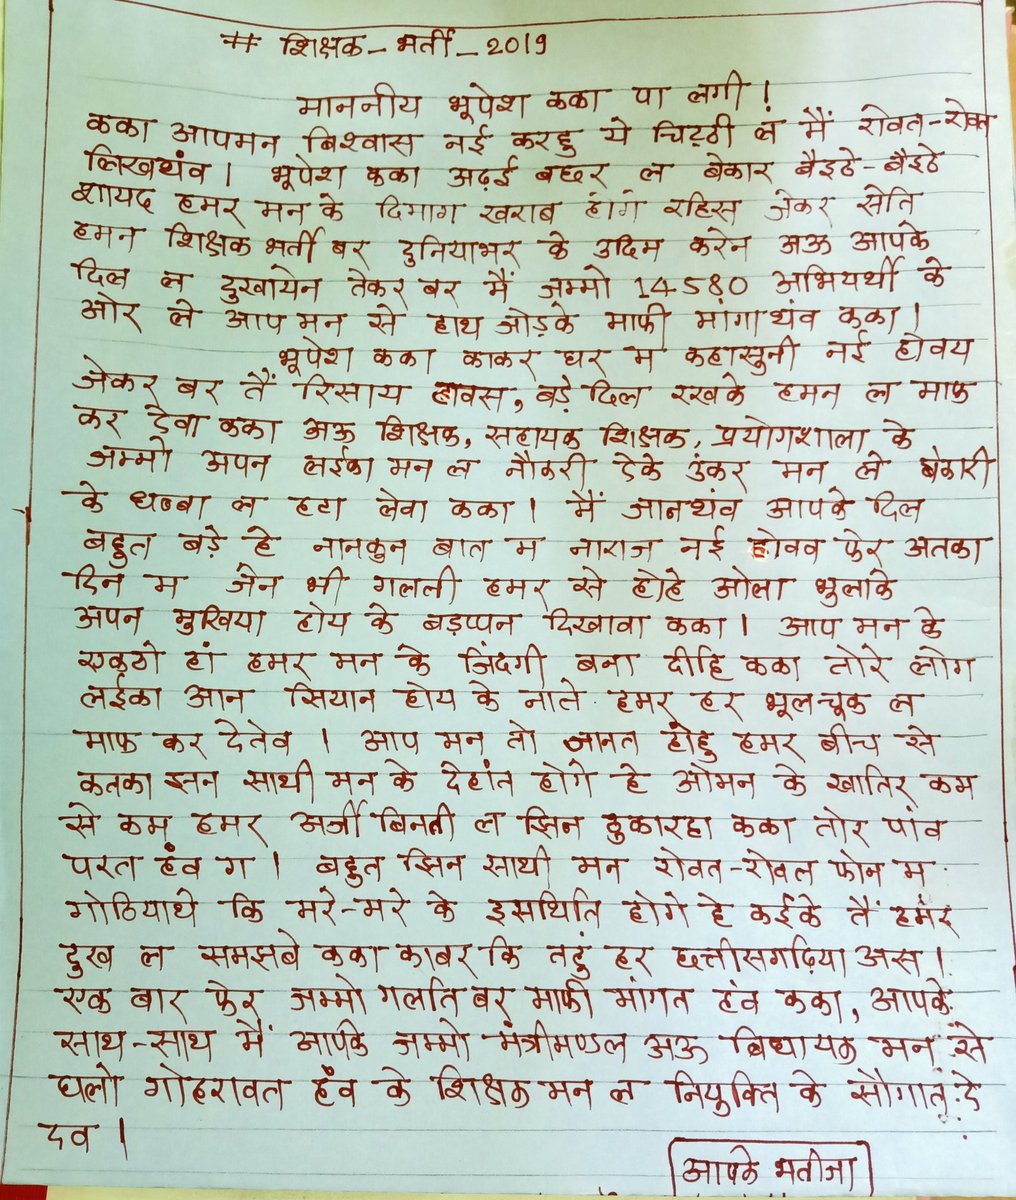 # शिक्षक - भर्ती - 2019
माननीय भूपेश कका पा लगी !
कका आपमन बिश्वास नई करहु ये चिट्ठी लं मैं रोवत-रोवत
लिखथंव । भूपेश कका अढ़ई बछर ल बेकार बैइठे-बैइठे
शायद हमर मन के दिमाग खराब होगे रहिस जेकर सेति
हमन शिक्षक भर्ती बर दुनियाभर के उदिम करेन अऊ आपके
दिल ल दुखायेन तेकर बर मैं जम्मो 14580 अभियर्थी के
ओर ले आप मन से हाथ जोड़के माफी मांगाथंव कका !
भूपेश कका काकर घर म कहासुनी नई होवय
जेकर बर तैं रिसाय हावस, बड़े दिल रखके हमन ल माफ
कर देवा कका अऊ शिक्षक, सहायक शिक्षक, प्रयोगशाला के
जम्मो अपन लईका मन ल नौकरी देके उंकर मन ले बेकारी
के धब्बा ल हटा लेवा कका । मैं जानथंव आपके दिल
बहुत बड़े हे नानकुन बात म नाराज नई होवव फेर अतका
दिन म जेन भी गलती हमर से होहे ओला भुलाके
अपन मुखिया होय के बड़प्पन दिखावा कका । आप मन के
एकठो हां हमर मन के जिंदगी बना दीहि कका तोरे लोग
लईका आन सियान होय के नाते हमर हर भूलचूक ल
माफ कर देतेव । आप मन तो जानत होहु हमर बीच से
कतका झन साथी मन के देहांत होगे हे ओमन के खातिर कम
से कम हमर अर्जी बिनती ल झिन ठुकारहा कका तोर पांव
परत हंव ग । बहुत झिन साथी मन रोवत-रोवत फोन म
गोठियाथे कि मरे-मरे के इसथिति होगे हे कईके तैं हमर
दुख ल समझबे कका काबर कि तहुं हर छत्तीसगढ़िया अस ।
एक बार फेर जम्मो गलति बर माफी मांगत हंव कका, आपके
साथ-साथ मैं आपके जम्मो मंत्रीमण्डल अऊ बिधायक मन से
घलो गोहरावत हंव के शिक्षक मन ल नियुक्ति के सौगात दे
देव ।
आपके भतीजा